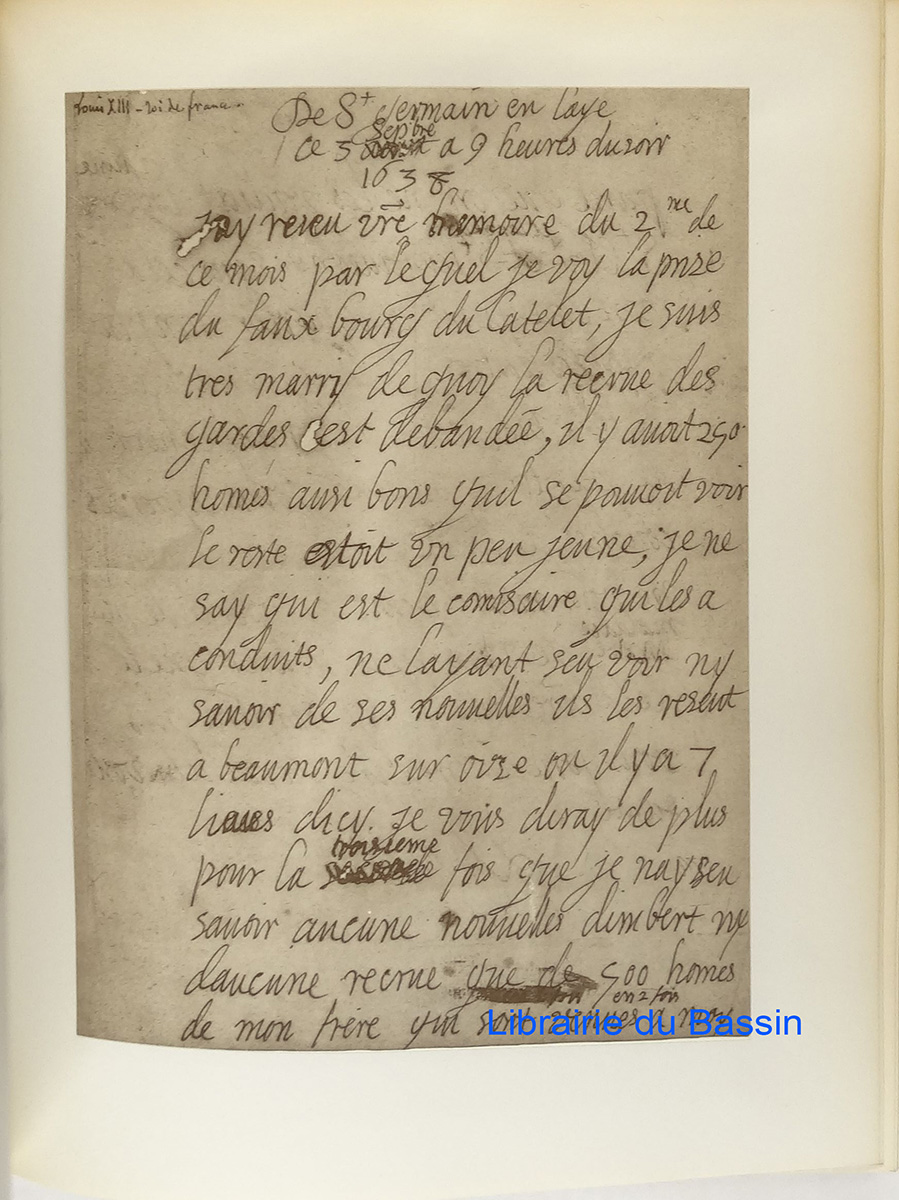 Louis XIII - roi de france..
De St Germain en laye
Sepbre
ce 5 a 9 heures du soir
1638
Jay reseu vre memoire du 2me de
ce mois par lequel je voy la prise
du faux bourg du Catelet, je suis
tres marry de quoy la recrue des
gardes cest debandée, il y auoit 250
homes ausi bons quil se pouuoit voir
le reste estoit un peu jeune, je ne
say qui est le comisaire qui les a
conduits, ne layant seu voir ny
sauoir de ses nouuelles ils les reseut
a beaumont sur oise ou il y a 7
lieues dicy. je vous diray de plus
troisieme
pour la fois que je nay seu
sauoir aucune nouuelles dimbert ny
daucune recrue que de 500 homes
en 2 fois
de mon frere qui sont
Librairie du Bassin